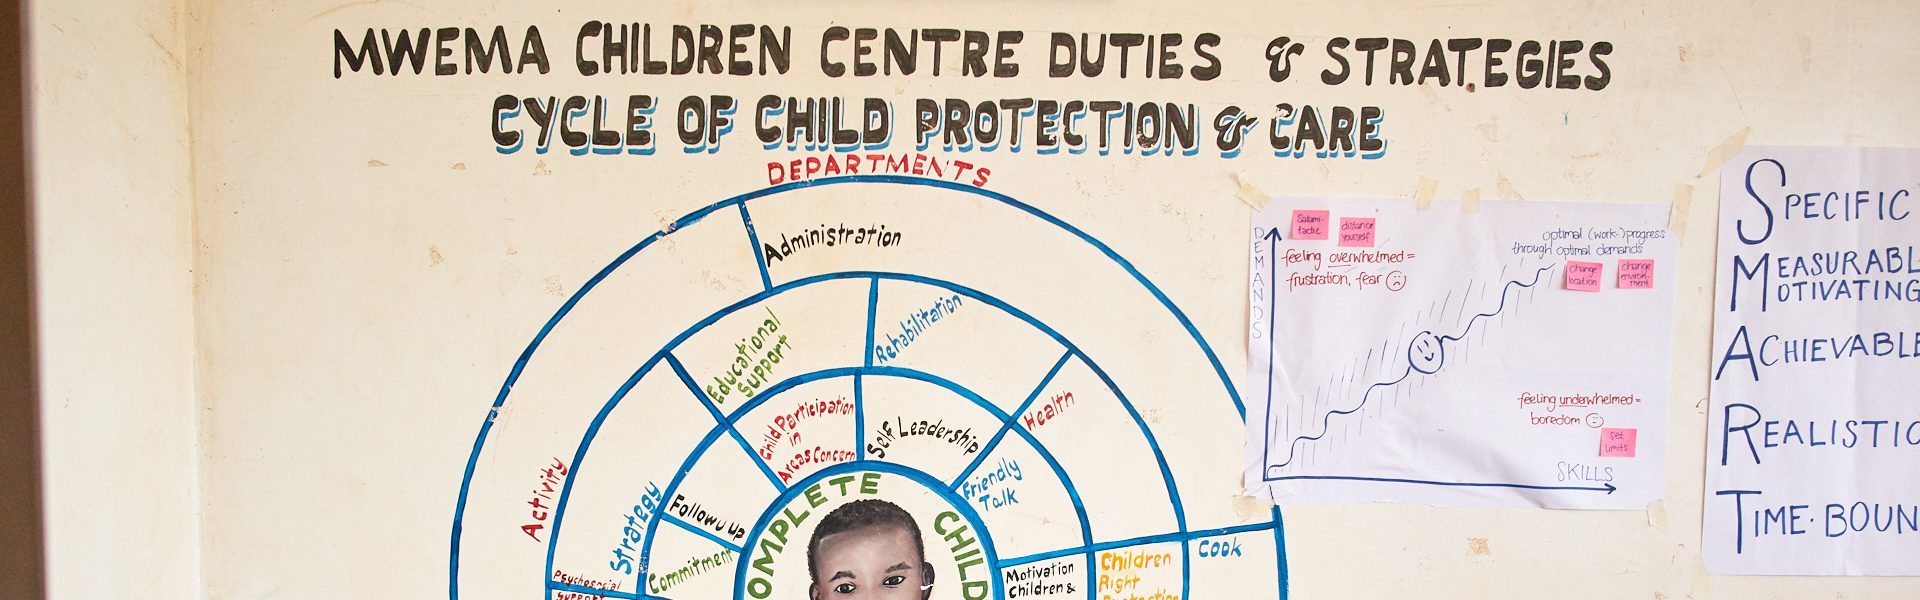 MWEMA CHILDREN CENTRE DUTIES & STRATEGIES
CYCLE OF CHILD PROTECTION & CARE
DEPARTMENTS
Administration
Educational
Support
Rehabilitation
Health
Child Participation
in
Areas Concern
Self Leadership
Friendly
Talk
Activity
Strategy
Followu up
Commitment
Psychosocial
Support
COMPLETE CHILD
Motivation
Children &
Children
Right
Protection
Cook
DEMANDS
Salami-
tactic
distance
yourself
feeling overwhelmed =
frustration, fear
optimal (work-)progress
through optimal demands
change
location
change
environ-
ment
feeling underwhelmed =
boredom
set
limits
SKILLS
SPECIFIC
MEASURABL
MOTIVATING
ACHIEVABLE
REALISTIC
TIME-BOUN